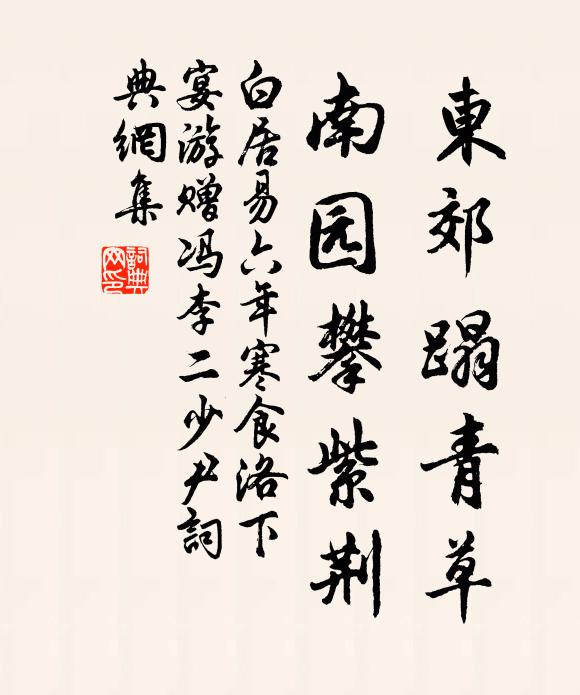 東郊蹋青草
南园攀紫荆
白居易六年寒食洛下
宴游赠冯李二少尹詞
典網集
詞典网印